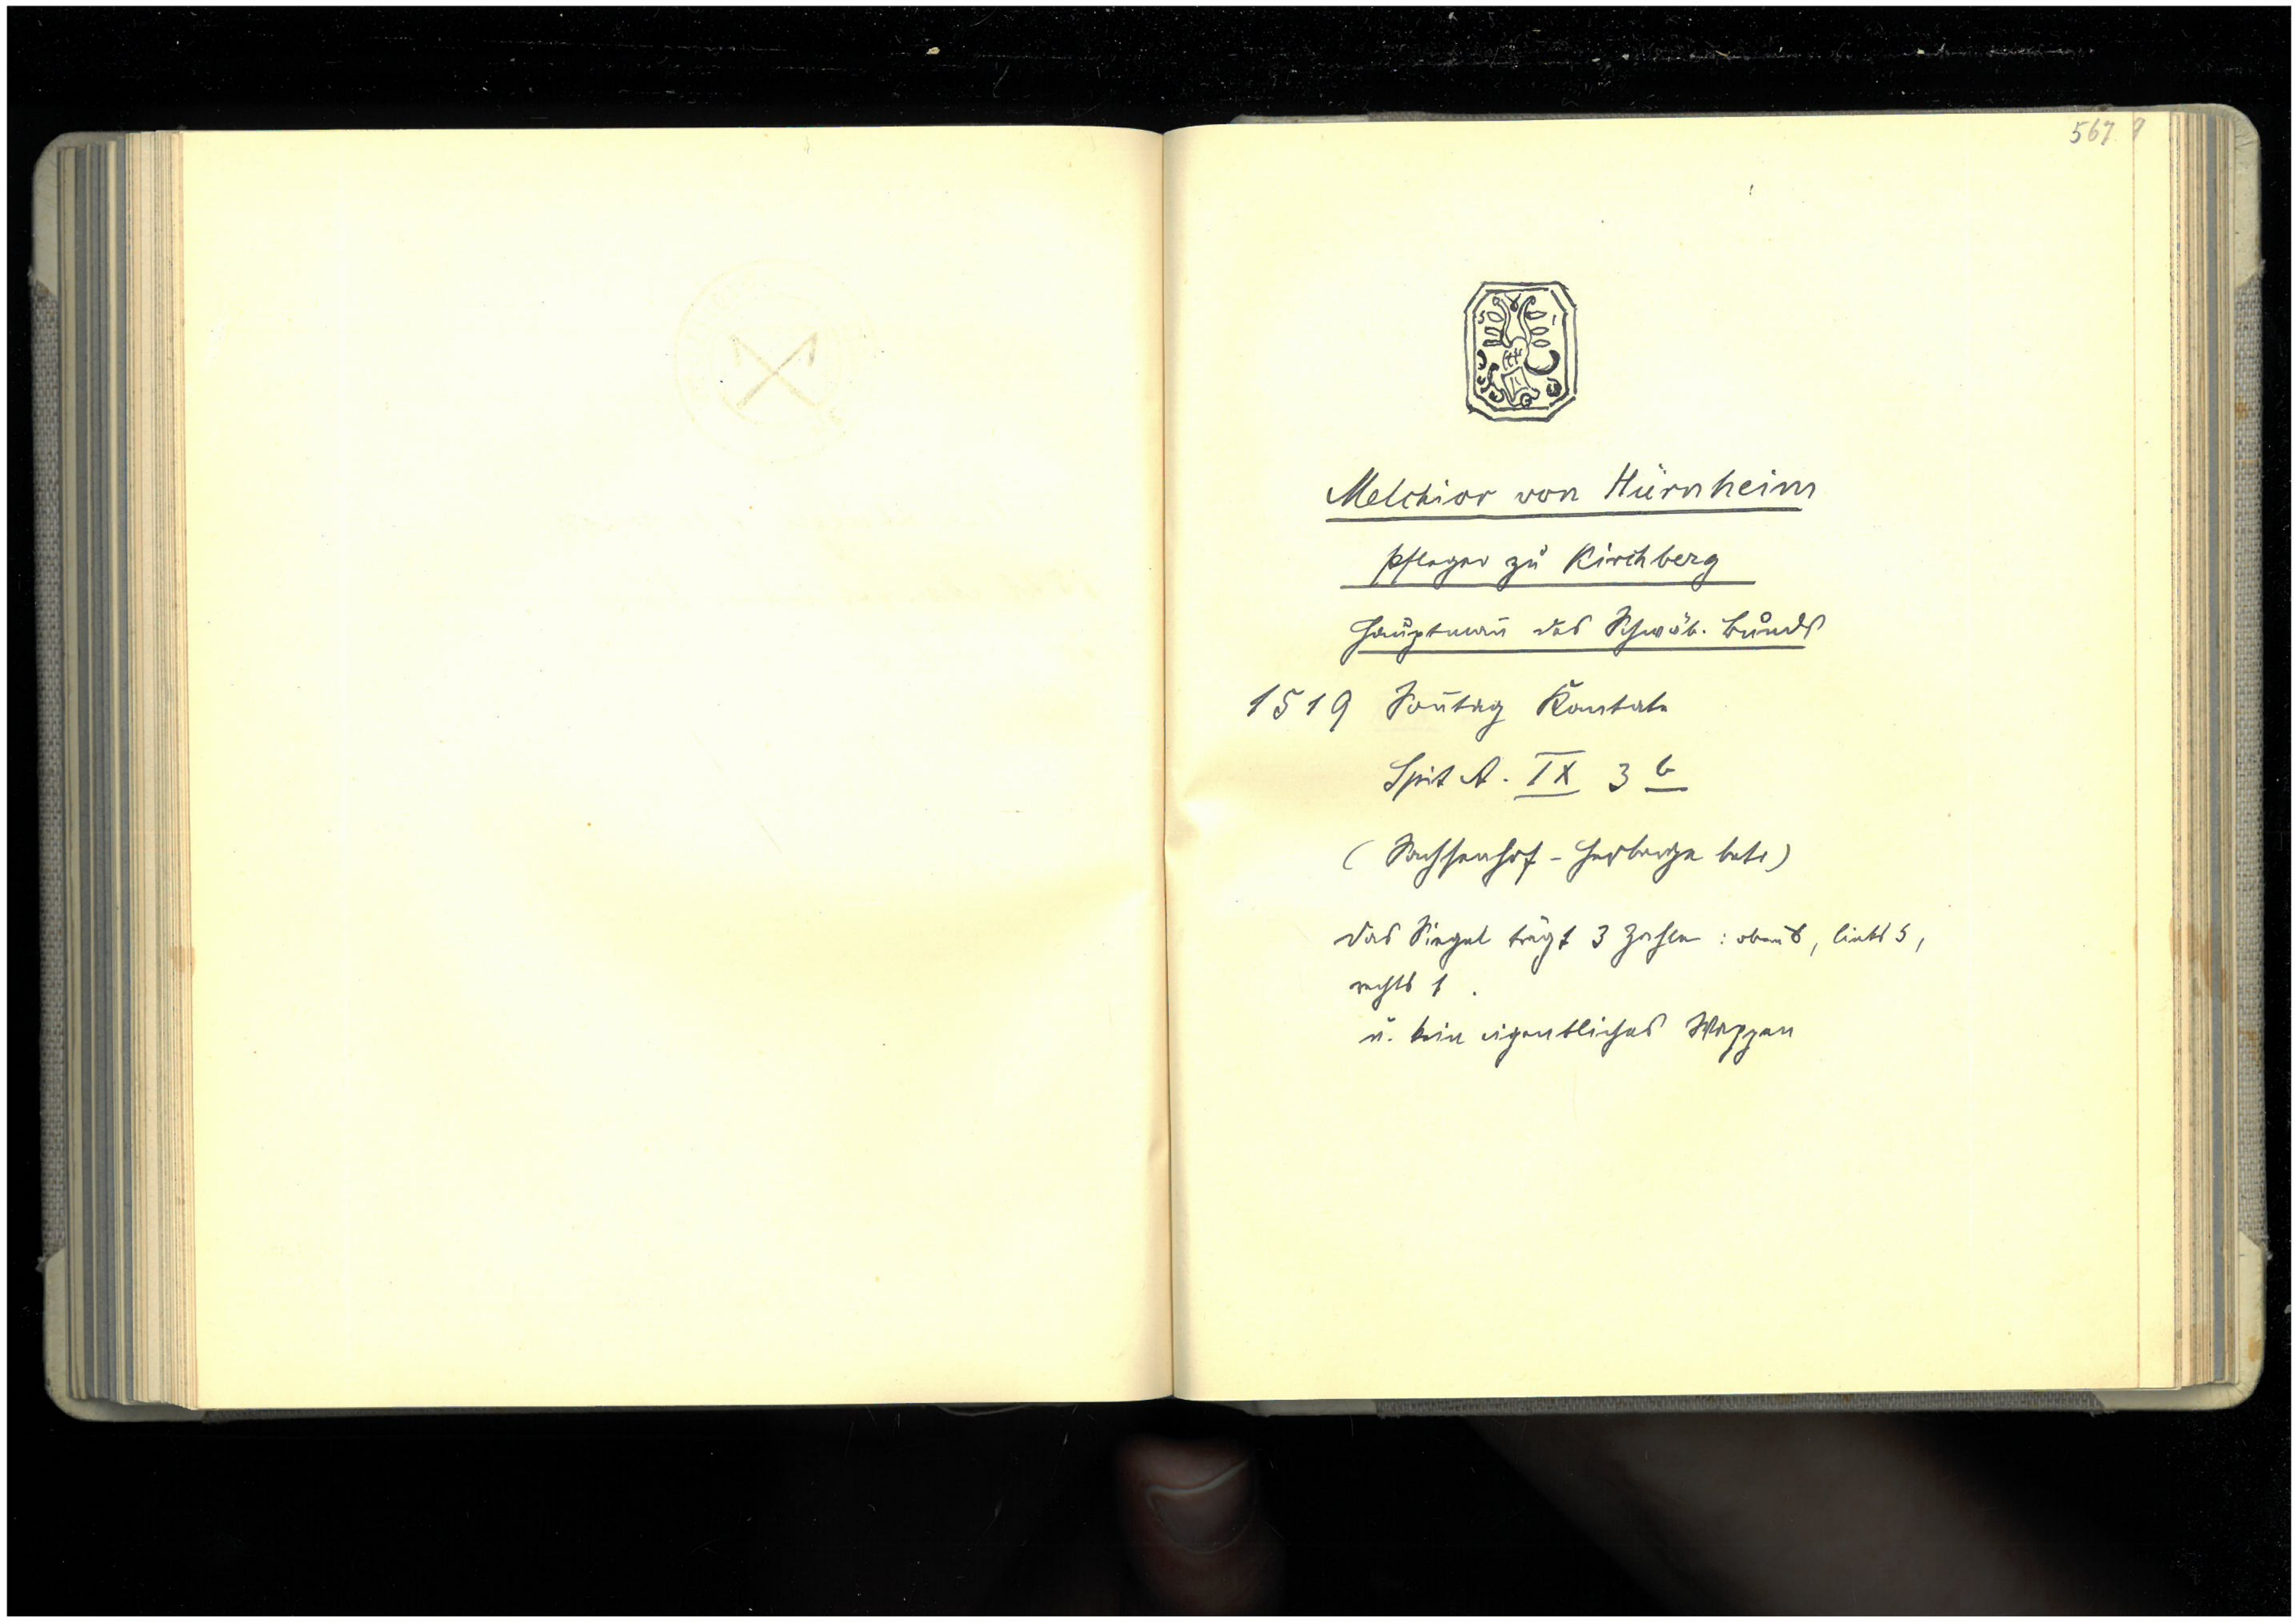 567
Melchior von Hürnheim
Pfleger zu Kirchberg
Hauptman̄ des Schwäb. Bunds
1519 Son̄tag Kantate
Spit A. IX 3 b
(Sachsenhof - Herberge betr)
Das Siegel trägt 3 Zahlen: oben 8, links 5,
rechts 1.
u. kein eigentliches Wappen